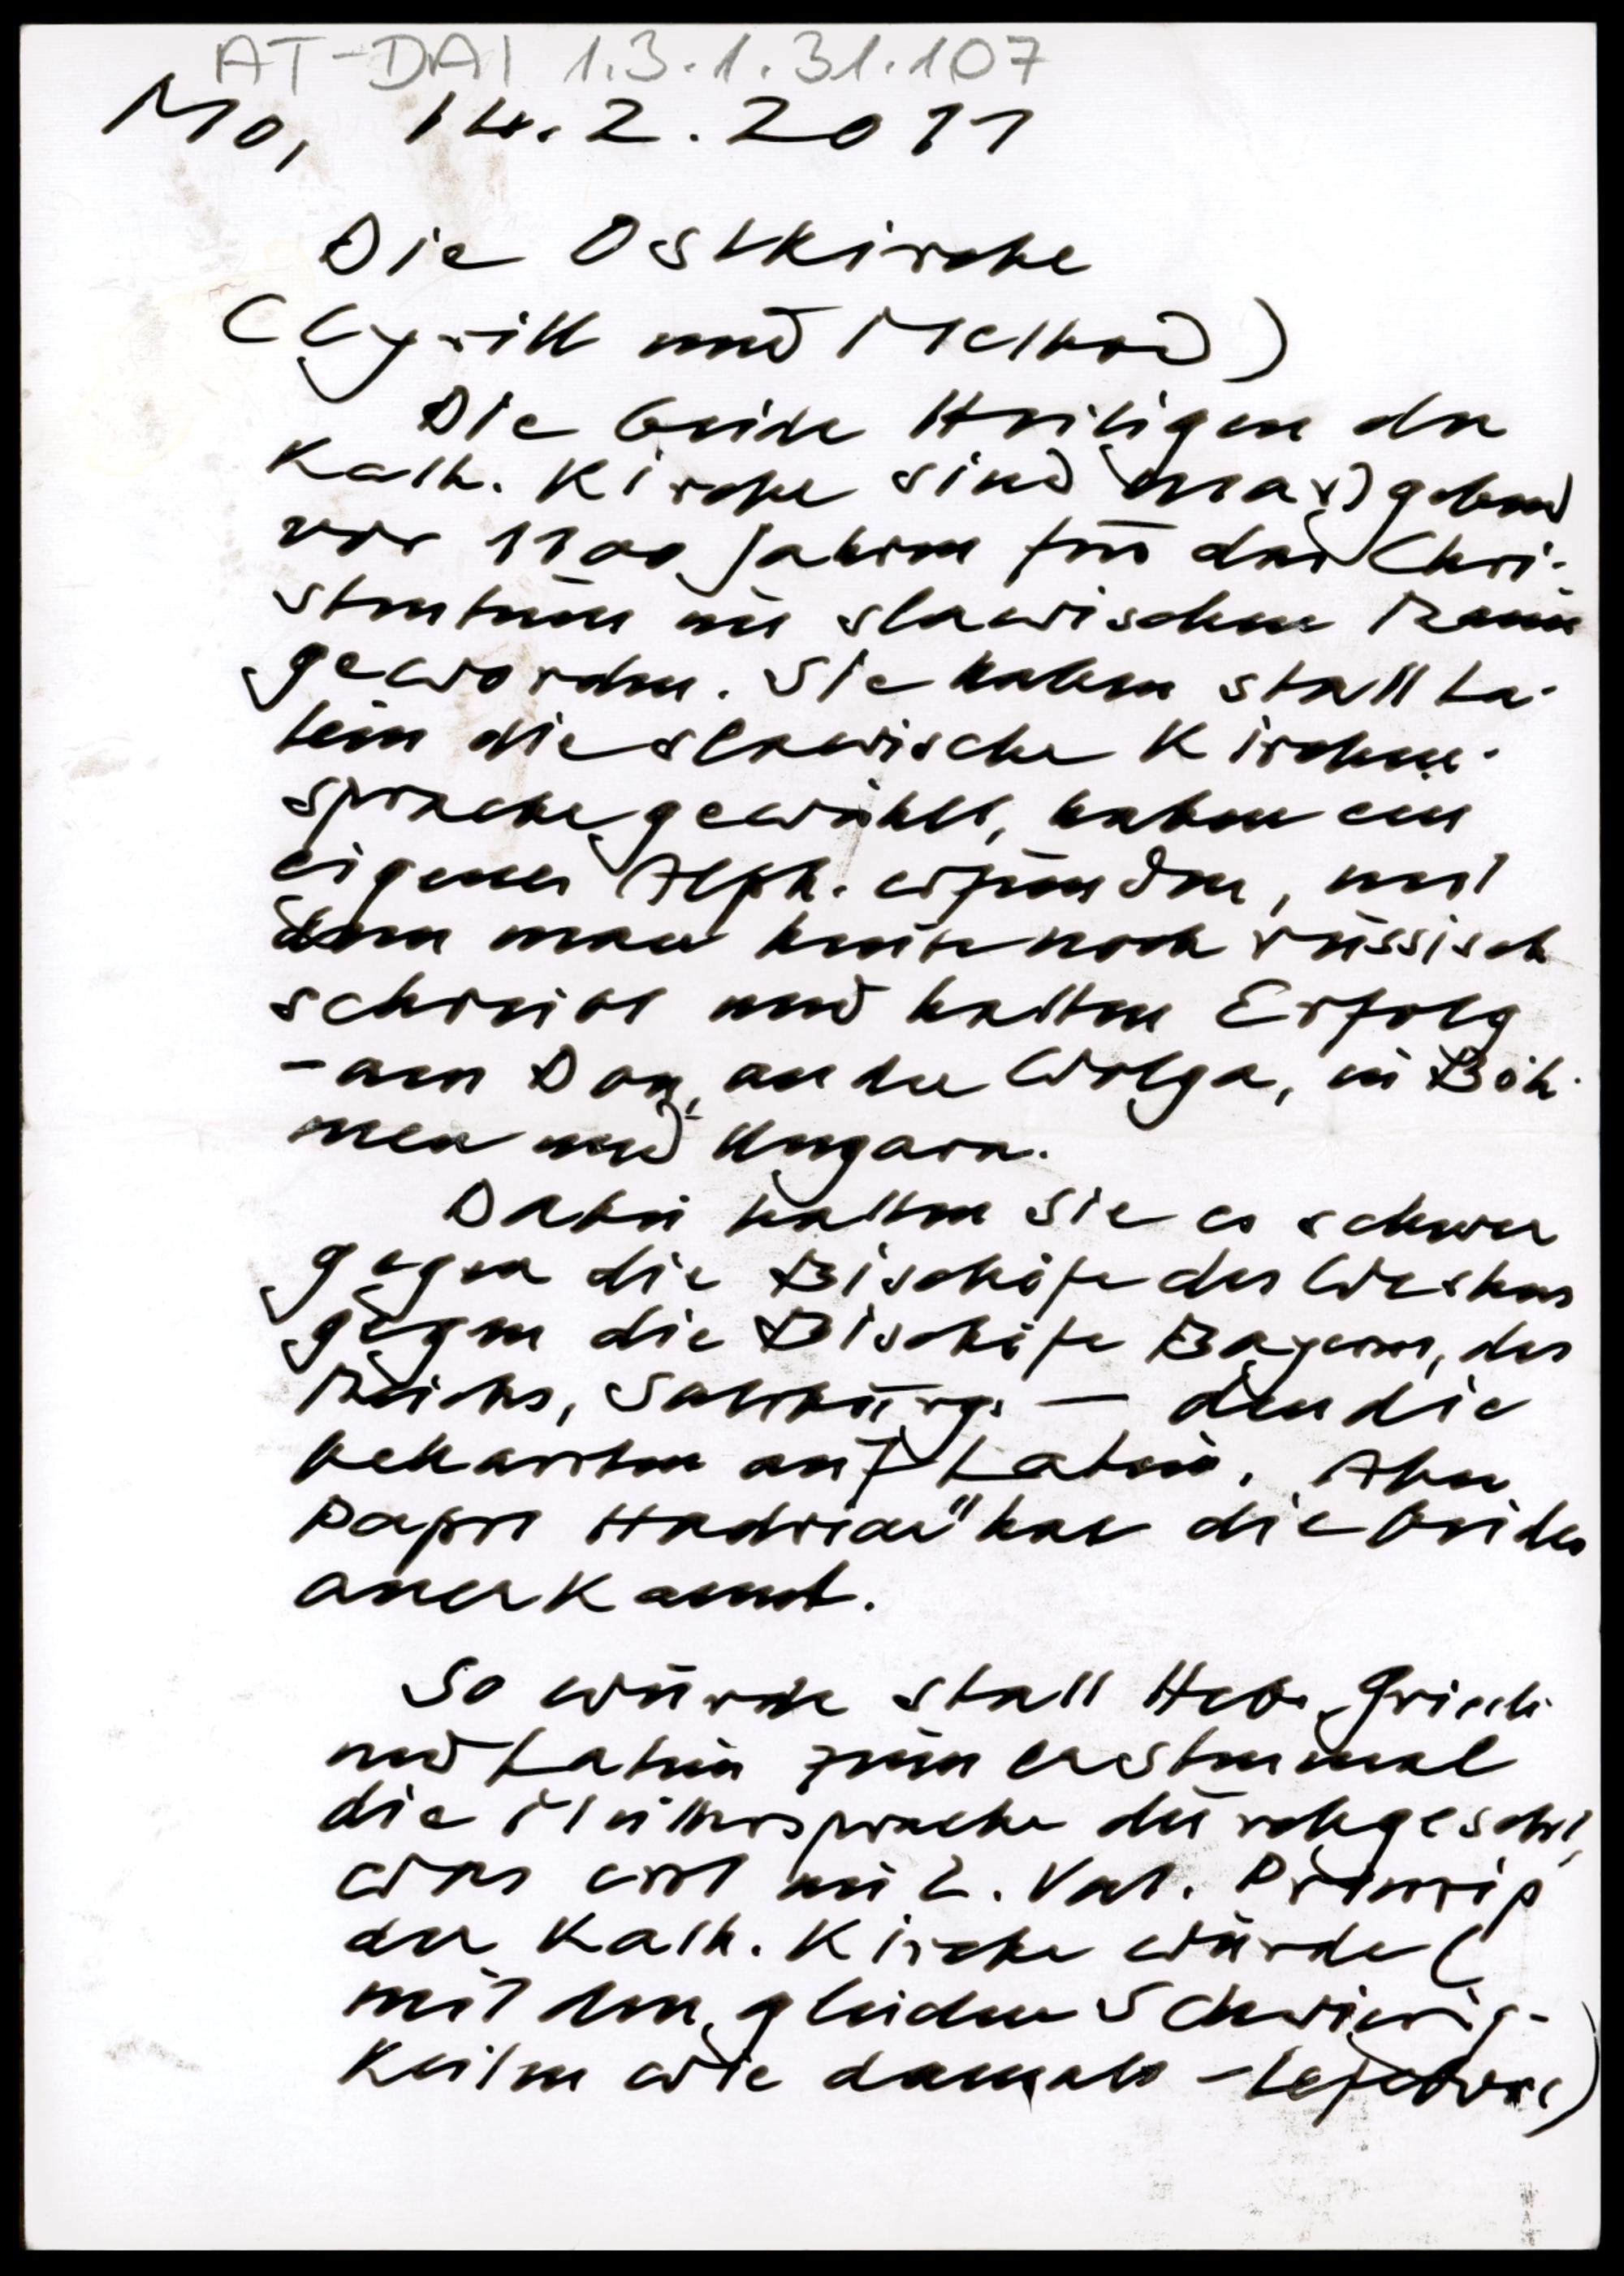 AT-DAI 1.3.1.31.107
Mo, 14.2.2011
Die Ostkirche
(Cyrill und Method)
Die beiden Heiligen der
Kath. Kirche sind massgebend
vor 1100 Jahren für das Chri-
stentum im slawischen Raum
geworden. Sie haben statt La-
tein die slawische Kirchen-
sprache gewählt, haben ein
eigenes Alph. erfunden, mit
dem man heute noch russisch
schreibt und hatten Erfolg
- am Don, an der Wolga, in Böh-
men und Ungarn.
Dabei hatten sie es schwer
gegen die Bischöfe des Westens
gegen die Bischöfe Bayerns, des
Reichs, Salzburgs — denn die
beharrten auf Latein. Aber
Papst Hadrian II hat die beiden
anerkannt.
So wurde statt Hebr. Griech
und Latein zum erstenmal
die Muttersprache durchgesetzt,
was erst im 2. Vat. Prinzip
der Kath. Kirche wurde (
mit den gleichen Schwierig-
keiten wie damals - Lefebvre)